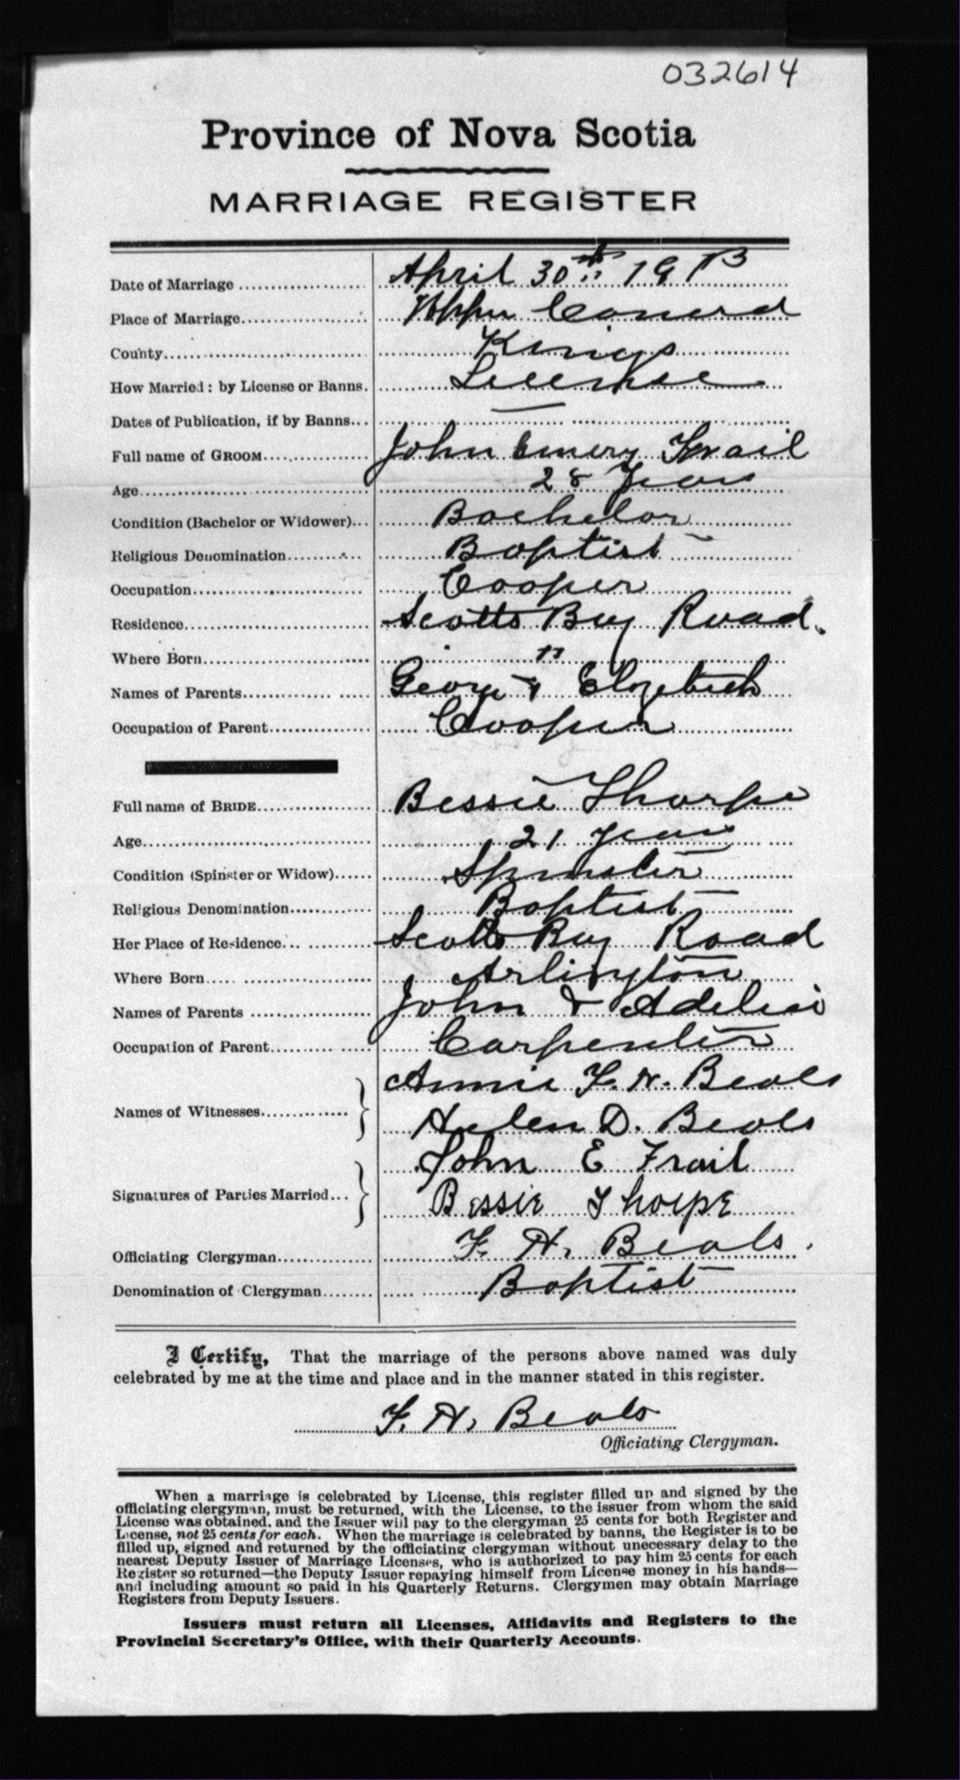 032614
Province of Nova Scotia
MARRIAGE REGISTER
Date of Marriage April 30th 1913
Place of Marriage Upper Canard
County Kings
How Married: by License or Banns. License
Dates of Publication, if by Banns —
Full name of GROOM John Emery Frail
Age 28 Years
Condition (Bachelor or Widower) Bachelor
Religious Denomination Baptist
Occupation Cooper
Residence Scotts Bay Road.
Where Born "
Names of Parents George & Elizabeth
Occupation of Parent Cooper
Full name of BRIDE Bessie Thorpe
Age 21 years
Condition (Spinster or Widow) Spinster
Religious Denomination Baptist
Her Place of Residence Scotts Bay Road
Where Born Arlington
Names of Parents John & Adelia
Occupation of Parent Carpenter
Names of Witnesses Annie F. N. Beals
Helen D. Beals
Signatures of Parties Married John E Frail
Bessie Thorpe
Officiating Clergyman F. H. Beals.
Denomination of Clergyman Baptist
I Certify, That the marriage of the persons above named was duly
celebrated by me at the time and place and in the manner stated in this register.
F. H. Beals
Officiating Clergyman.
When a marriage is celebrated by License, this register filled up and signed by the
officiating clergyman, must be returned, with the License, to the issuer from whom the said
License was obtained, and the Issuer will pay to the clergyman 25 cents for both Register and
License, not 25 cents for each. When the marriage is celebrated by banns, the Register is to be
filled up, signed and returned by the officiating clergyman without unecessary delay to the
nearest Deputy Issuer of Marriage Licenses, who is authorized to pay him 25 cents for each
Register so returned—the Deputy Issuer repaying himself from License money in his hands—
and including amount so paid in his Quarterly Returns. Clergymen may obtain Marriage
Registers from Deputy Issuers.
Issuers must return all Licenses, Affidavits and Registers to the
Provincial Secretary's Office, with their Quarterly Accounts.